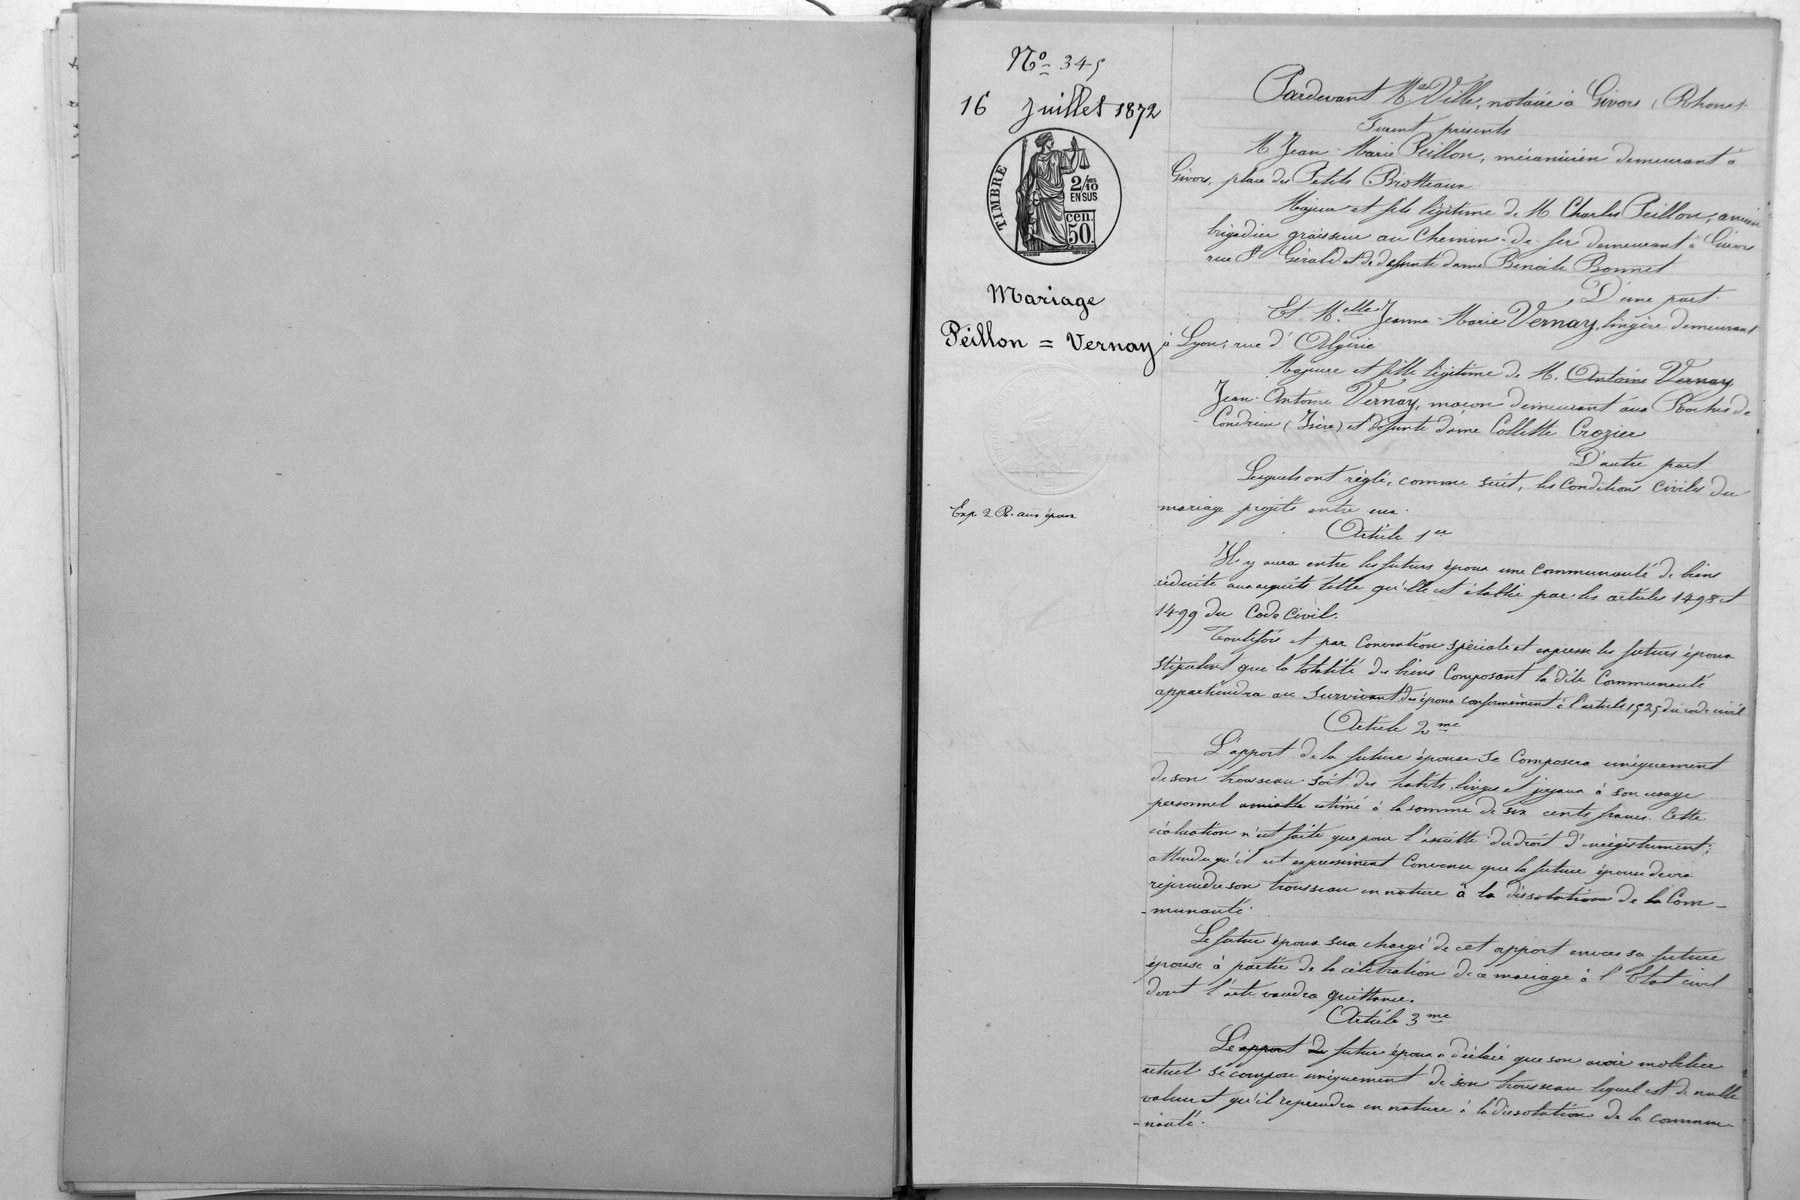 No 345
16 Juillet 1872
TIMBRE
2/10
EN SUS
cen.
50
Mariage
Peillon = Vernay
Exp. 2 R. aux époux
Pardevant Me Ville, notaire à Givors (Rhône)
Furent présents
M. Jean-Marie Peillon, mécanicien demeurant à
Givors, place des Petits Brotteaux
Majeur et fils légitime de M. Charles Peillon, ancien
brigadier graisseur au Chemin-de-fer demeurant à Givors
rue St Gérald et de défunte dame Benoite Bonnet
D'une part.
Et Melle Jeanne-Marie Vernay, lingère demeurant
à Lyon, rue d'Algérie
Majeure et fille légitime de M. Antoine Vernay
Jean-Antoine Vernay, maçon demeurant aux Roches de
Condrieu (Isère) et défunte dame Collette Crozier
D'autre part
Lesquels ont réglé, comme suit, les Conditions Civiles du
mariage projeté entre eux.
Article 1er
Il y aura entre les futurs époux une Communauté de biens
réduite aux acquêts telle qu'elle est établie par les articles 1498 et
1499 du Code Civil.
Toutefois et par Convention spéciale et expresse les futurs époux
stipulent que la totalité des biens Composant la dite Communauté
appartiendra au survivant des époux conformément à l'article 1525 du code civil
Article 2me
L'apport de la future épouse se Composera uniquement
de son trousseau soit des habits, linges et joyaux à son usage
personnel amiable estimé à la somme de six cents francs. Cette
évaluation n'est faite que pour l'assiette du droit d'enregistrement;
attendu qu'il est expressément Convenu que la future épouse devra
reprendre son trousseau en nature à la dissolution de la Com-
-munauté.
Le futur époux sera chargé de cet apport envers sa future
épouse à partir de la célébration de ce mariage à l'Etat civil
dont l'acte vaudra quittance.
Article 3me
L'apport du futur époux a déclaré que son avoir mobilier
actuel se compose uniquement de son trousseau lequel est de nulle
valeur et qu'il reprendra en nature à la dissolution de la commu-
-nauté.